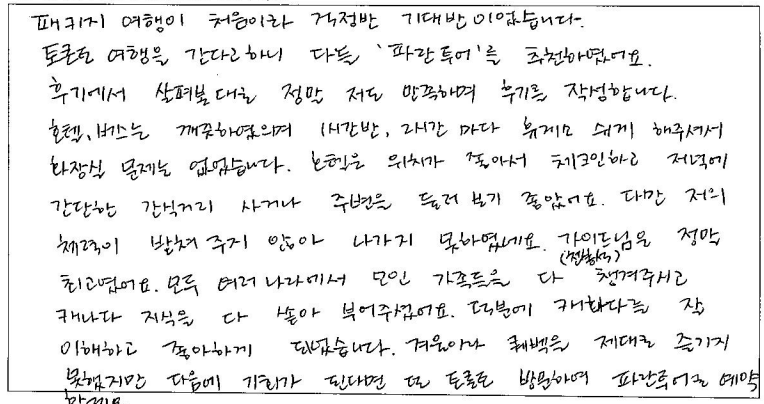 패키지 여행이 처음이라 걱정반 기대반이었습니다.
토론토 여행을 간다고하니 다들 '파란투어'를 추천하였어요.
후기에서 살펴본대로 정말 저도 만족하며 후기를 작성합니다.
호텔, 버스는 깨끗하였으며 1시간반, 2시간 마다 휴게소 쉬게 해주셔서
화장실 문제는 없었습니다. 호텔은 위치가 좋아서 체크인하고 저녁에
간단한 간식거리 사거나 주변을 둘러 보기 좋았어요. 다만 저의
체력이 받쳐 주지 않아 나가지 못하였네요. 가이드님은 정말
최고였어요. 모두 여러나라에서 모인 가족들을 다 챙겨주시고
캐나다 지식을 다 쏟아 부어주셨어요. 덕분에 캐나다를 잘
이해하고 좋아하게 되었습니다. 겨울이라 퀘백을 제대로 즐기지
못했지만 다음에 기회가 된다면 또 토론토 방문하여 파란투어로 예약